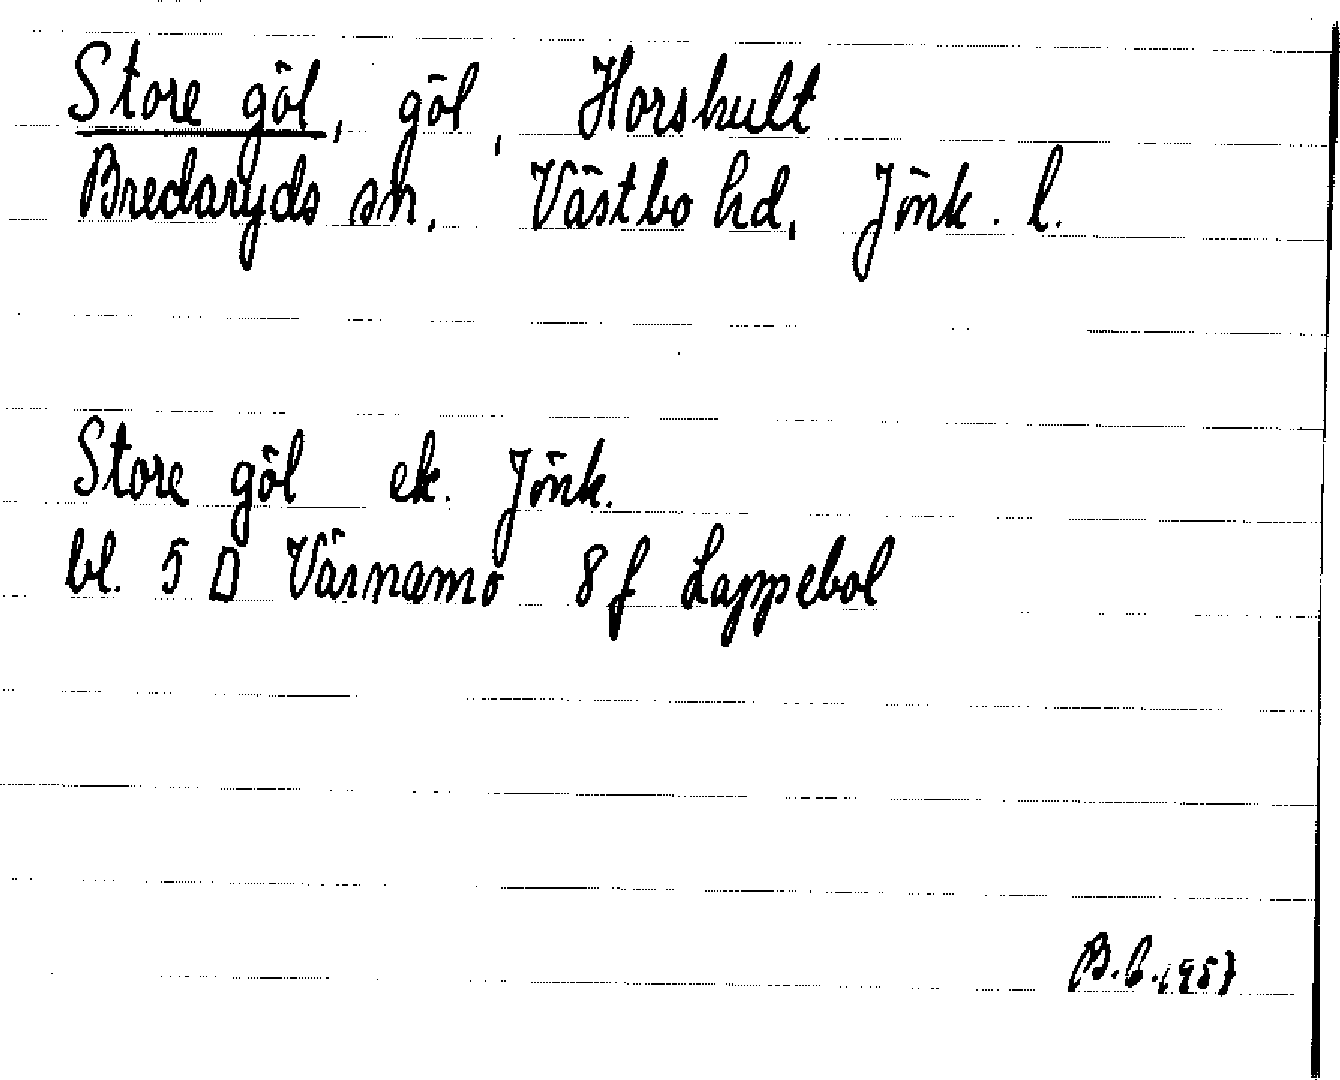 Store göl, göl, Horshult
Bredaryds sn. Västbo hd, Jönk. l.
Store göl ek. Jönk.
bl. 5 D Värnamo 8 f Lappebol
B.b.1957